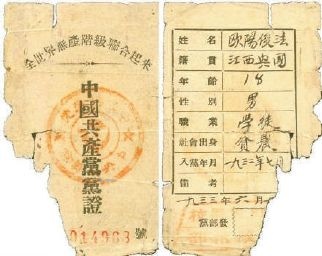 全世界無產階級聯合起來
中國共產黨黨證
號
姓名 歐陽俊法
籍貫 江西興國
年齡 18
性別 男
職業 學徒
社會出身 貧農
入黨年月 一九三二年七月
備考
一九三三年六月
黨部發